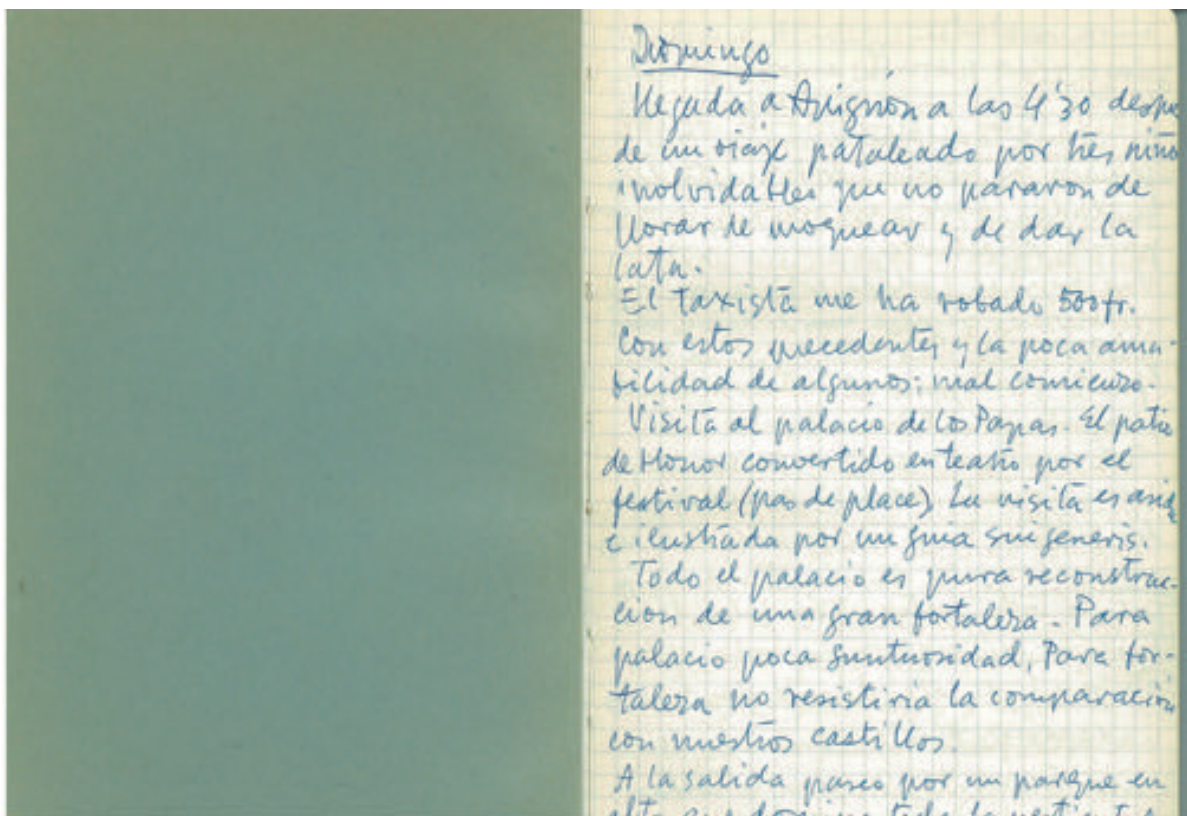 Domingo
Llegada a Avignon a las 4'30 despu
de un viaje pataleado por tres niño
inolvidables que no pararon de
llorar de moquear y de dar la
lata.
El taxista me ha robado 500 fr.
Con estos precedentes y la poca ama-
bilidad de algunos: mal comienzo.
Visita al palacio de los Papas. El patio
de Honor convertido en teatro por el
festival (pas de place). La visita es
e ilustrada por un guia sui generis.
Todo el palacio es pura reconstruc-
cion de una gran fortaleza. Para
palacio poca suntuosidad, Para for-
taleza no resistiria la comparación
con nuestros castillos.
A la salida paseo por un parque en
alto que domina toda la